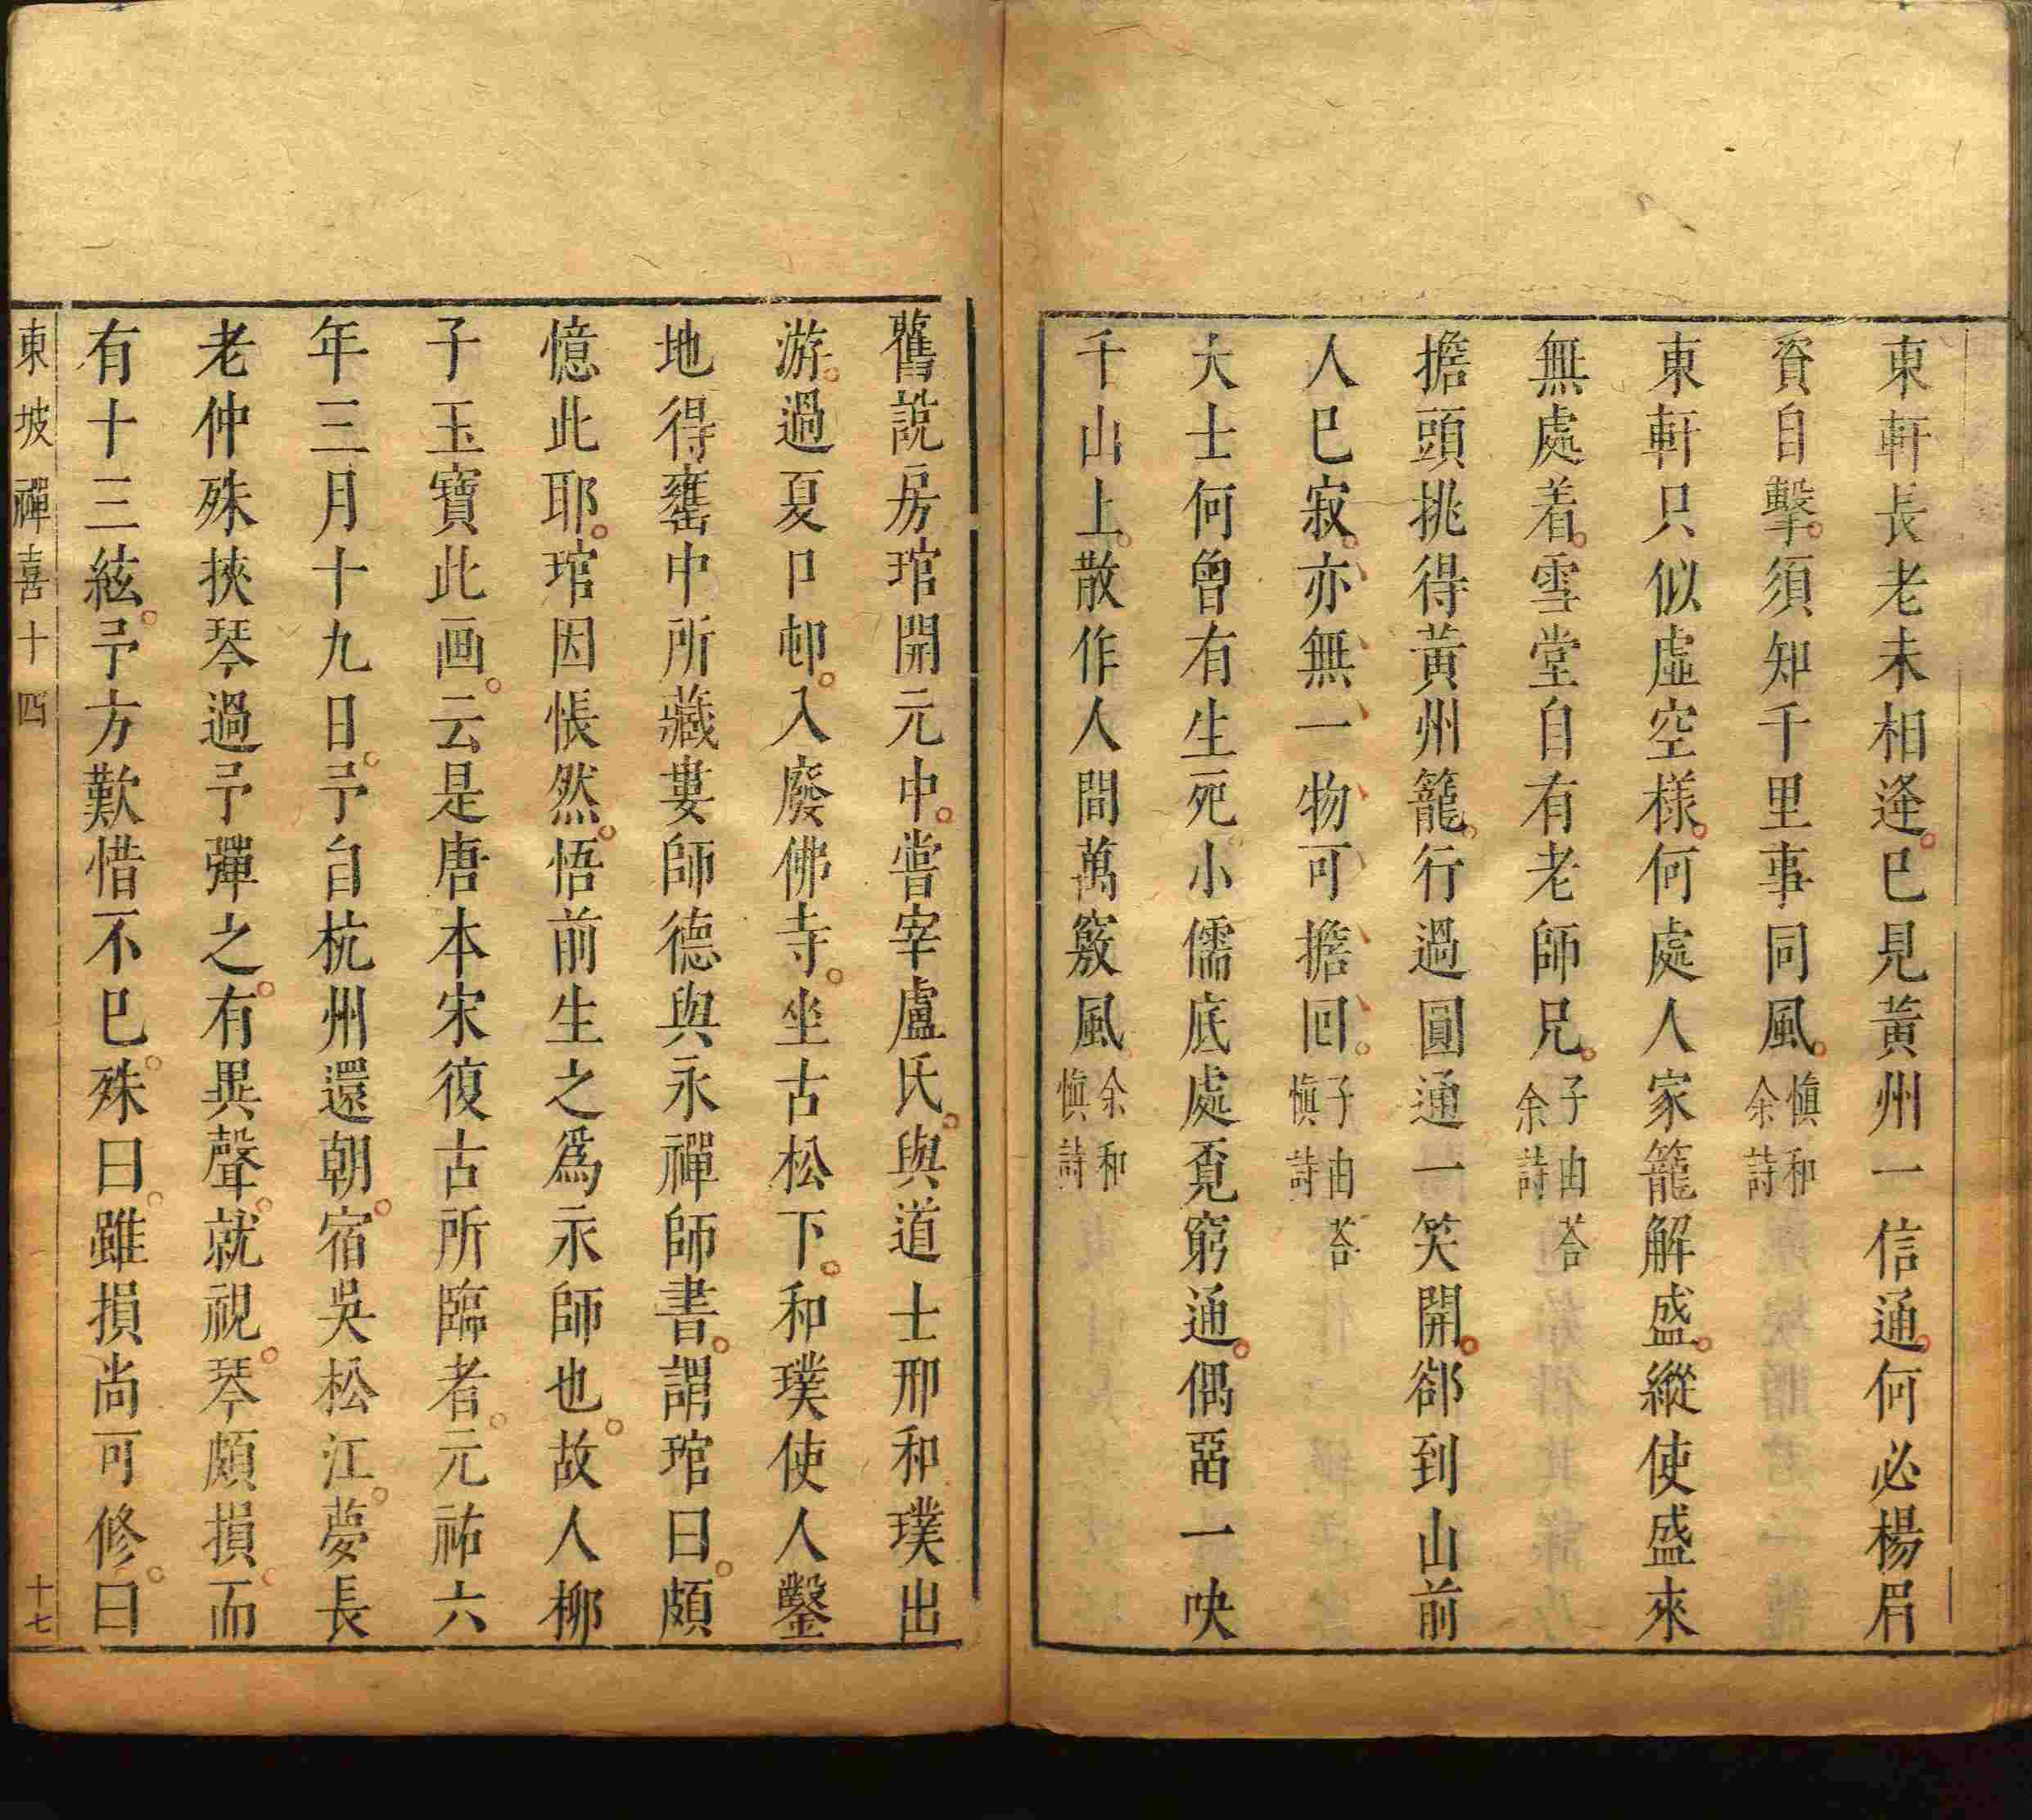 東軒長老未相逢。已見黃州一信通。何必楊眉
資自擊。須知千里事同風。愼和余詩
東軒只似虛空樣。何處人家籠解盛。縱使盛來
無處着。雪堂自有老師兄。子由荅余詩
擔頭挑得黃州籠。行過圓通一笑開。郤到山前
人已寂。亦無一物可擔囘。子由荅愼詩
大士何曾有生死小儒底處覔窮通。偶畱一吷
千山上。散作人間萬竅風余和愼詩
舊說房琯開元中。嘗宰盧氏。與道士邢和璞出
游。過夏口邨。入廢佛寺。坐古松下。和璞使人鑿
地得罋中所藏婁師德與永禪師書。謂琯曰。頗
憶此耶。琯因悵然。悟前生之爲永師也。故人柳
子玉寶此画。云是唐本宋復古所臨者。元祐六
年三月十九日。予自杭州還朝。宿吳松江。夢長
老仲殊挾琴過予彈之。有異聲。就視。琴頗損。而
有十三絃。予方歎惜不已。殊曰。雖損尚可修。曰
東坡禪喜十四
十七